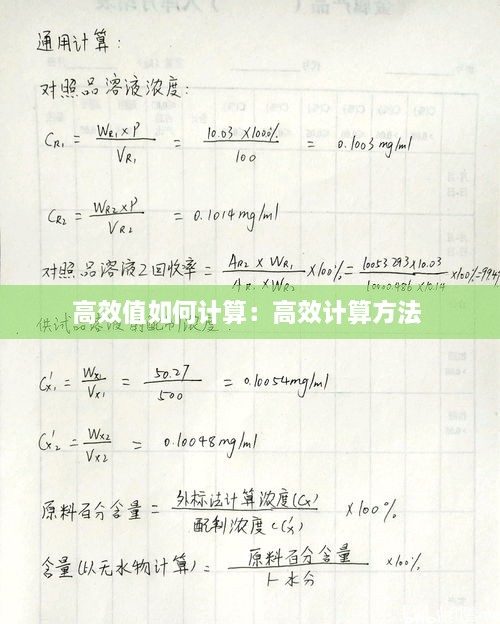 通用计算:
对照品溶液浓度:
C_R1 = W_R1×P / V_R1 = 10.03×100% / 100 = 0.1003mg/ml
C_R2 = W_R2×P / V_R2 = 0.1014mg/ml
对照品溶液2回收率 = A_R2 × W_R1 / × 100% = 10053293×10.03 / ×100%=
高效值如何计算：高效计算方法
供试品溶液的配制浓度:
C'_X1 = W_X1 / V_X1 = 50.27 / 500 = 0.10054mg/ml
C'_X2 = W_X2 / V_X2 = 0.10048mg/ml
原料百分含量 = 外标法计算浓度(Cx) / 配制浓度(C'x) ×100%
含量(以无水物计算) = 原料百分含量 / 1-水分 ×100%